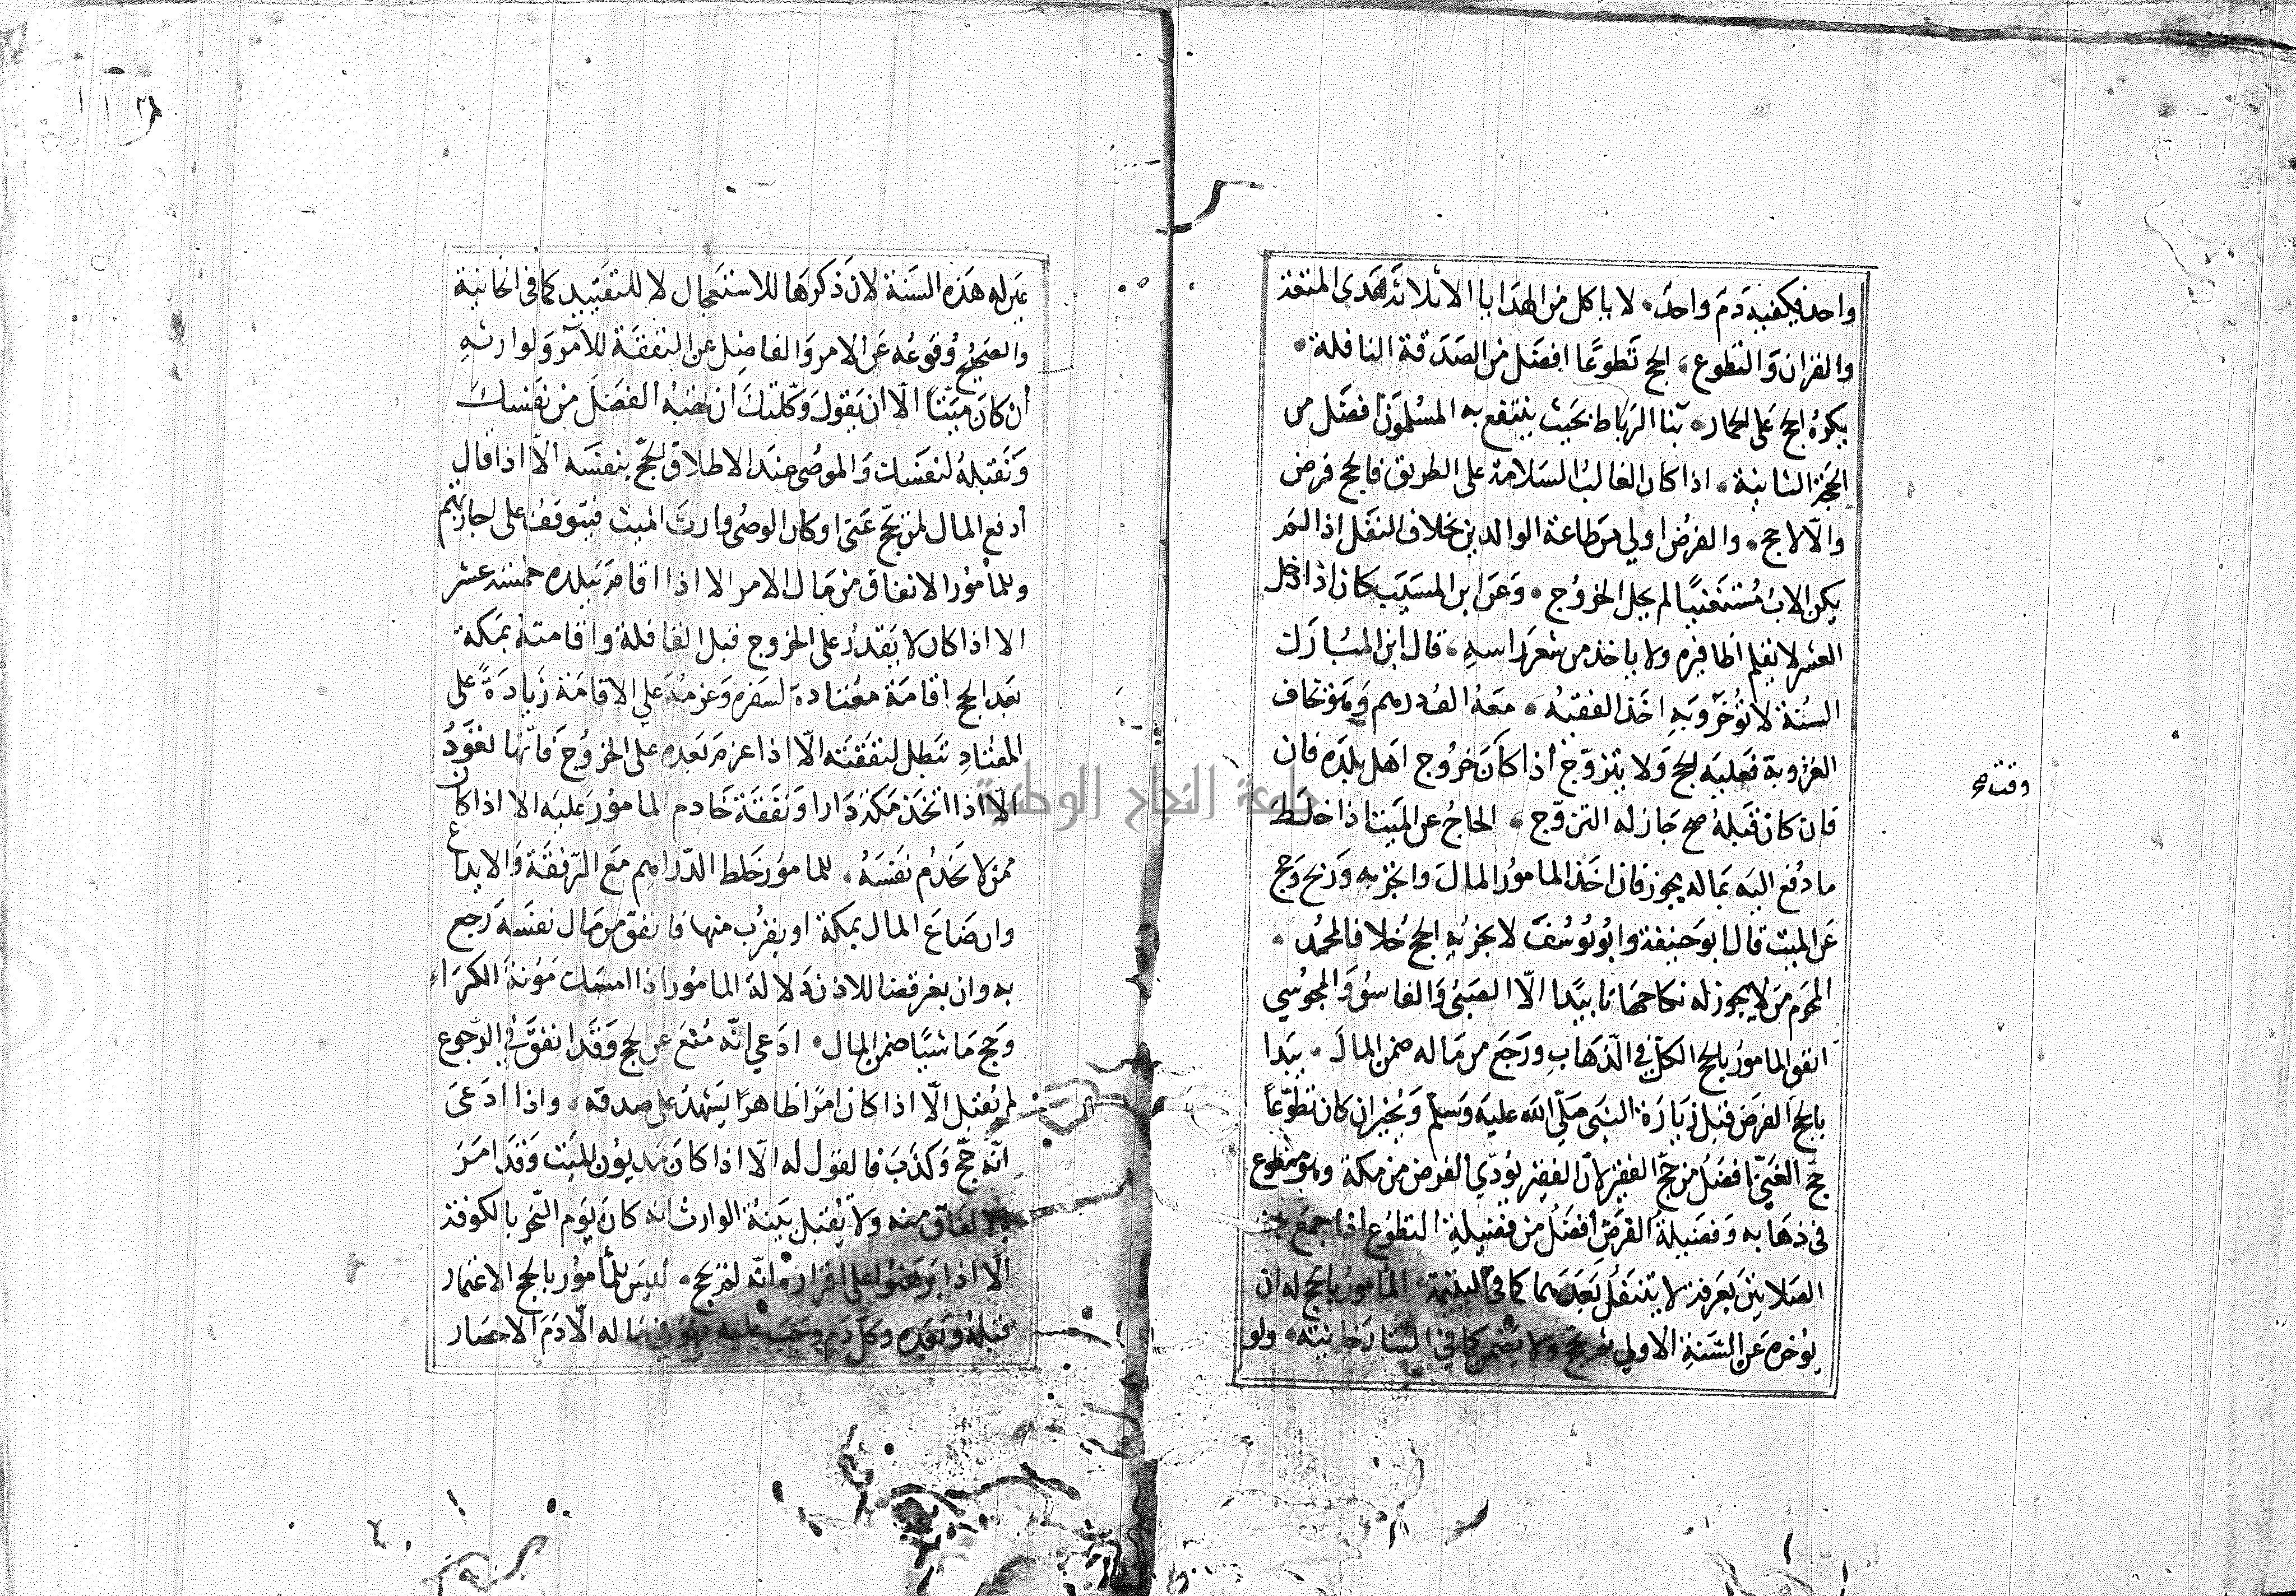 واحد فيكفيه دم واحد • لا ياكل من الهدايا الا ثلاثة هدى المتعة
والقران والتطوع • الحج تطوعا افضل من الصدقة النافلة •
يكره الحج على الحمار • بنا الرباط بحيث ينتفع به المسلمون افضل من
الحجة الثانية • اذا كان الغالب السلامة على الطريق فالحج فرض
والا لا حج • والفرض اولي من طاعة الوالدين بخلاف النفل اذا لم
يكن الاب مستغنيا لم يحل الخروج • وعن ابن المسيب كان اذا دخل
العشر لا يقلم اظافيره ولا ياخذ من شعر راسه • قال ابن المبارك
السنة لا تؤخر وبه اخذ الفقيه • معه الف درهم وهو يخاف
العزوبة فعليه الحج ولا يتزوج اذا كان خروج اهل بلده فان
وقته صح
فان كان قبله صح جاز له التزوج • الحاج عن الميت اذا خلط
ما دفع اليه بماله يجوز فان اخذ المامور المال واتجر به وربح وحج
عن الميت قال ابو حنيفة وابو يوسف لا يجزيه الحج خلافا لمحمد •
المحرم من لا يجوز له نكاحها تابيدا الا الصبي والفاسق والمجوسي
انفق المامور بالحج الكل في الذهاب ورجع من ماله ضمن المال • يبدا
بالحج الفرض قبل زيارة النبي صلي الله عليه وسلم ويخير ان كان تطوعا
حج الغني افضل من حج الفقير لان الفقير يؤدي الفرض من مكة وهو متطوع
في ذهابه وفضيلة الفرض افضل من فضيلة التطوع اذا جمع بين
الصلاتين بعرفة لا يتنفل بعدهما كما في اليتيمة • المامور بالحج له ان
يؤخره عن السنة الاولي ثم يحج ولا يضمن كما في التتارخانية • ولو
عين له هذه السنة لان ذكرها للاستعجال لا للتقييد كما في الخانية
والصحيح وقوعه عن الامر والفاضل عن النفقة للآمر ولوارثه
ان كان ميتا الا ان يقول وكلتك ان تهب الفضل من نفسك
وتقبله لنفسك والموصى عند الاطلاق الحج بنفسه الا اذا قال
ادفع المال لمن يحج عني او كان الوصي وارث الميت فيتوقف على اجازتهم
وللمأمور الانفاق من مال الامر الا اذا اقام ببلده خمسة عشر
الا اذا كان لا يقدر على الخروج قبل القافلة واقامته بمكة
بعد الحج اقامة معتادة لسفره وعزمه علي الاقامة زيادة على
المعتاد تبطل لنفقته الا اذا عزم بعده على الخروج فانها تعود
الا اذا اتخذ مكة دارا ونفقة خادم المامور عليه الا اذا كان
ممن لا يخدم نفسه • للمامور خلط الدراهم مع الرفقة والايداع
وان ضاع المال بمكة او يقرب منها فانفق من مال نفسه رجع
به وان بغير قضا للاذن دلالة المامور اذا امسك مؤنة الكراء
وحج ماشيا ضمن المال • ادعي انه منع عن الحج وقد انفق في الرجوع
لم يقبل الا اذا كان امرا ظاهرا يشهد على صدقه • واذا ادعى
انه حج وكذب فالقول له الا اذا كان مديون الميت وقد امر
بالانفاق منه ولا يقبل بينة الوارث انه كان يوم النحر بالكوفة
الا اذا برهنوا على اقراره انه لم يحج • ليس للمأمور بالحج الاعتمار
قبله وبعده وكل دم وجب عليه فهو في ماله الا دم الاحصار
جامعة النجاح الوطنية